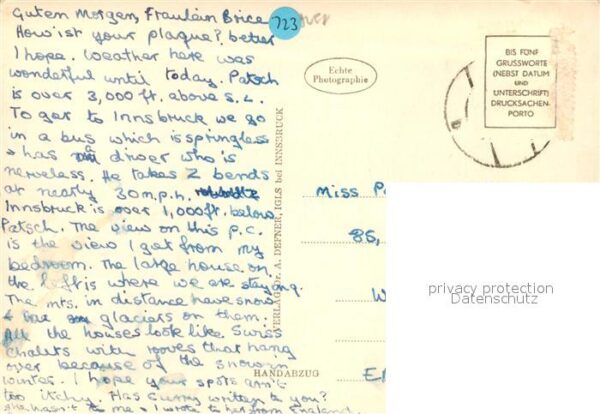 Guten Morgen, Fraulein Brice
How ist your plaque? better
I hope. Weather here was
wonderful until today. Patsch
is over 3,000 ft. above S.L.
To get to Innsbruck we go
in a bus which is springless
& has driver who is
nerveless. He takes Z bends
at nearly 30 m.p.h.
Innsbruck is over 1,000 ft. below
Patsch. The view on this p.c.
is the view I get from my
bedroom. The large house on
the left is where we are staying.
The mts. in distance have snow
& glaciers on them.
All the houses look like Swiss
chalets with rooves that hang
over because of the snow in
winter. I hope your spots aren't
too itchy. Has written to you?
She hasn't to me & I wrote to her from England.
723
Echte
Photographie
BIS FÜNF
GRUSSWORTE
(NEBST DATUM
UND
UNTERSCHRIFT)
DRUCKSACHEN-
PORTO
VERLAG: Dr. A. DEFNER, IGLS bei INNSBRUCK
HANDABZUG
Miss P
86,
W
E
privacy protection
Datenschutz